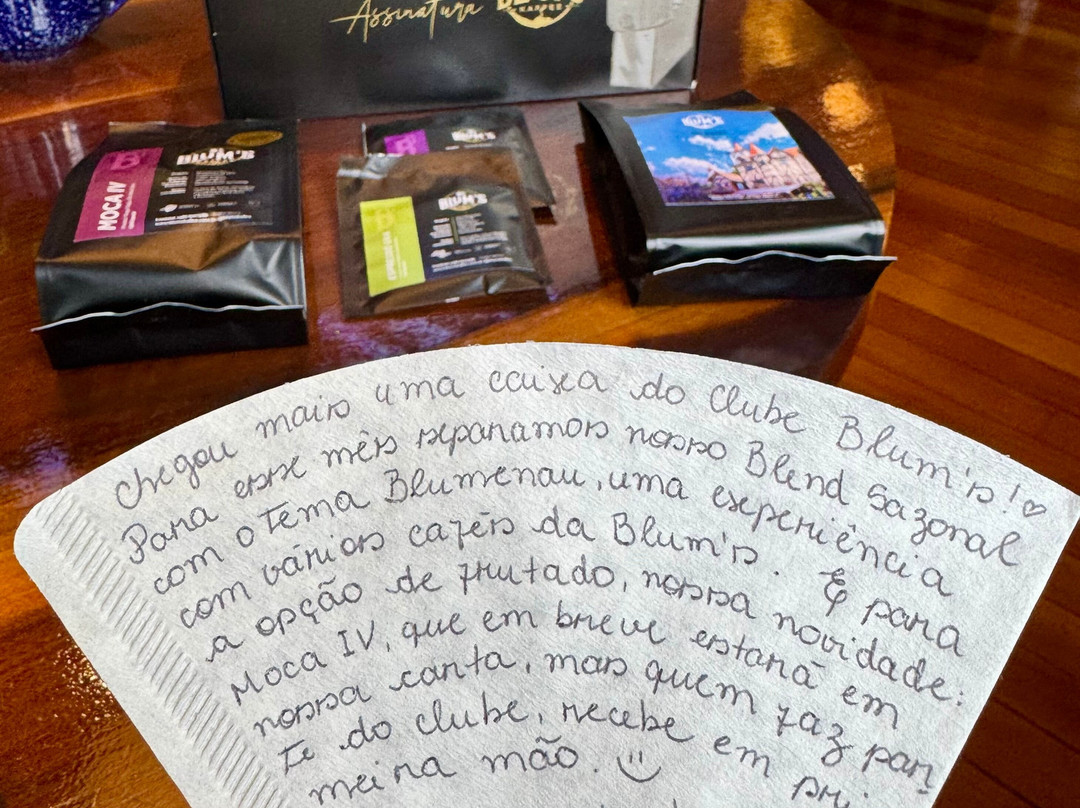 Assinatura
BLUM'S
MOCA IV
BLUM'S
BLUM'S
BLUM'S
chegou mais uma caixa do clube Blum's! ♡
Para esse mês separamos nosso Blend sazonal
com o tema Blumenau, uma experiência
com vários cafés da Blum's. E para
a opção de frutado, nossa novidade:
Moca IV, que em breve estará em
nossa carta, mas quem faz par
te do clube, recebe em pri
meira mão. :)